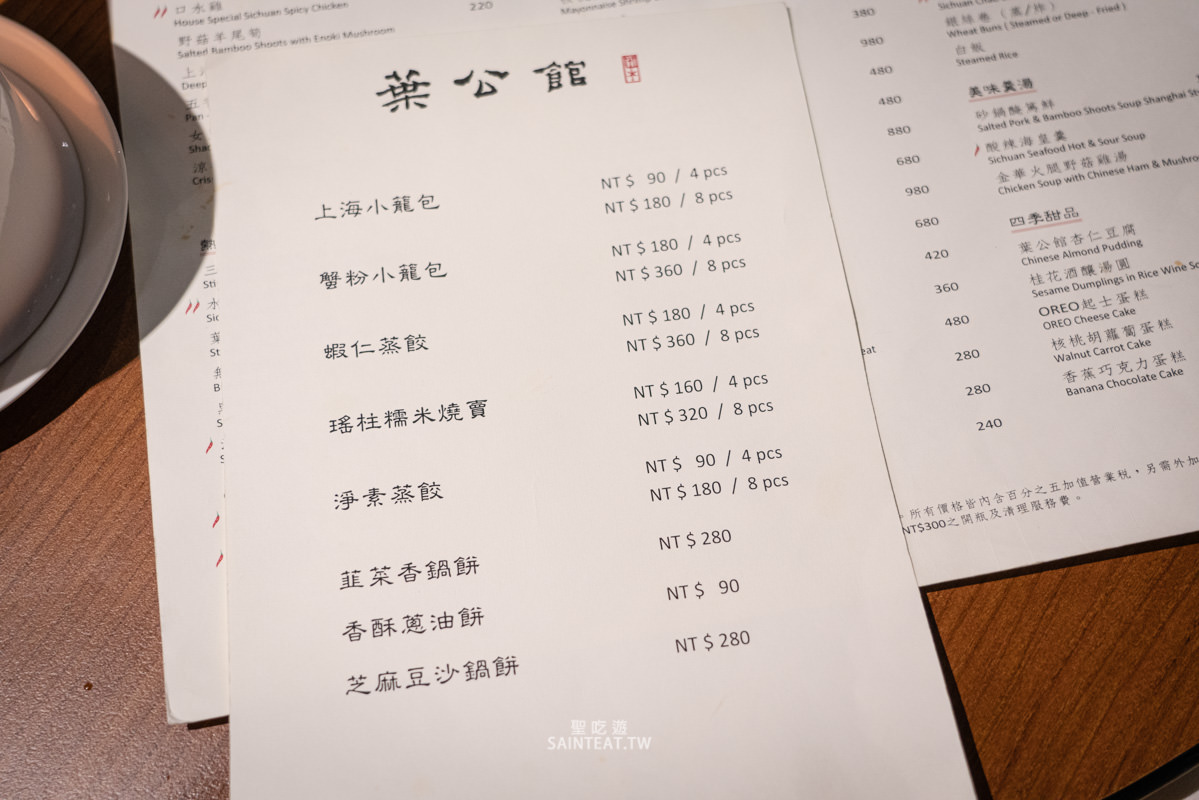 口水雞
House Special Sichuan Spicy Chicken
220
野菇羊尾筍
Salted Bamboo Shoots with Enoki Mushroom
葉公館
上海小籠包
NT $ 90 / 4 pcs
NT $ 180 / 8 pcs
蟹粉小籠包
NT $ 180 / 4 pcs
NT $ 360 / 8 pcs
蝦仁蒸餃
NT $ 180 / 4 pcs
NT $ 360 / 8 pcs
瑤柱糯米燒賣
NT $ 160 / 4 pcs
NT $ 320 / 8 pcs
淨素蒸餃
NT $ 90 / 4 pcs
NT $ 180 / 8 pcs
韮菜香鍋餅
NT $ 280
香酥蔥油餅
NT $ 90
芝麻豆沙鍋餅
NT $ 280
380
980
480
480
880
680
980
680
420
360
480
280
280
240
銀絲卷（蒸/炸）
Wheat Buns ( Steamed or Deep - Fried )
白飯
Steamed Rice
美味羹湯
砂鍋醃篤鮮
Salted Pork & Bamboo Shoots Soup Shanghai
酸辣海皇羹
Sichuan Seafood Hot & Sour Soup
金華火腿野菇雞湯
Chicken Soup with Chinese Ham &
四季甜品
葉公館杏仁豆腐
Chinese Almond Pudding
桂花酒釀湯圓
Sesame Dumplings in Rice Wine
OREO起士蛋糕
OREO Cheese Cake
核桃胡蘿蔔蛋糕
Walnut Carrot Cake
香蕉巧克力蛋糕
Banana Chocolate Cake
所有價格皆內含百分之五加值營業稅，另需外加
NT$300之開瓶及清理服務費。
聖吃遊
SAINTEAT.TW